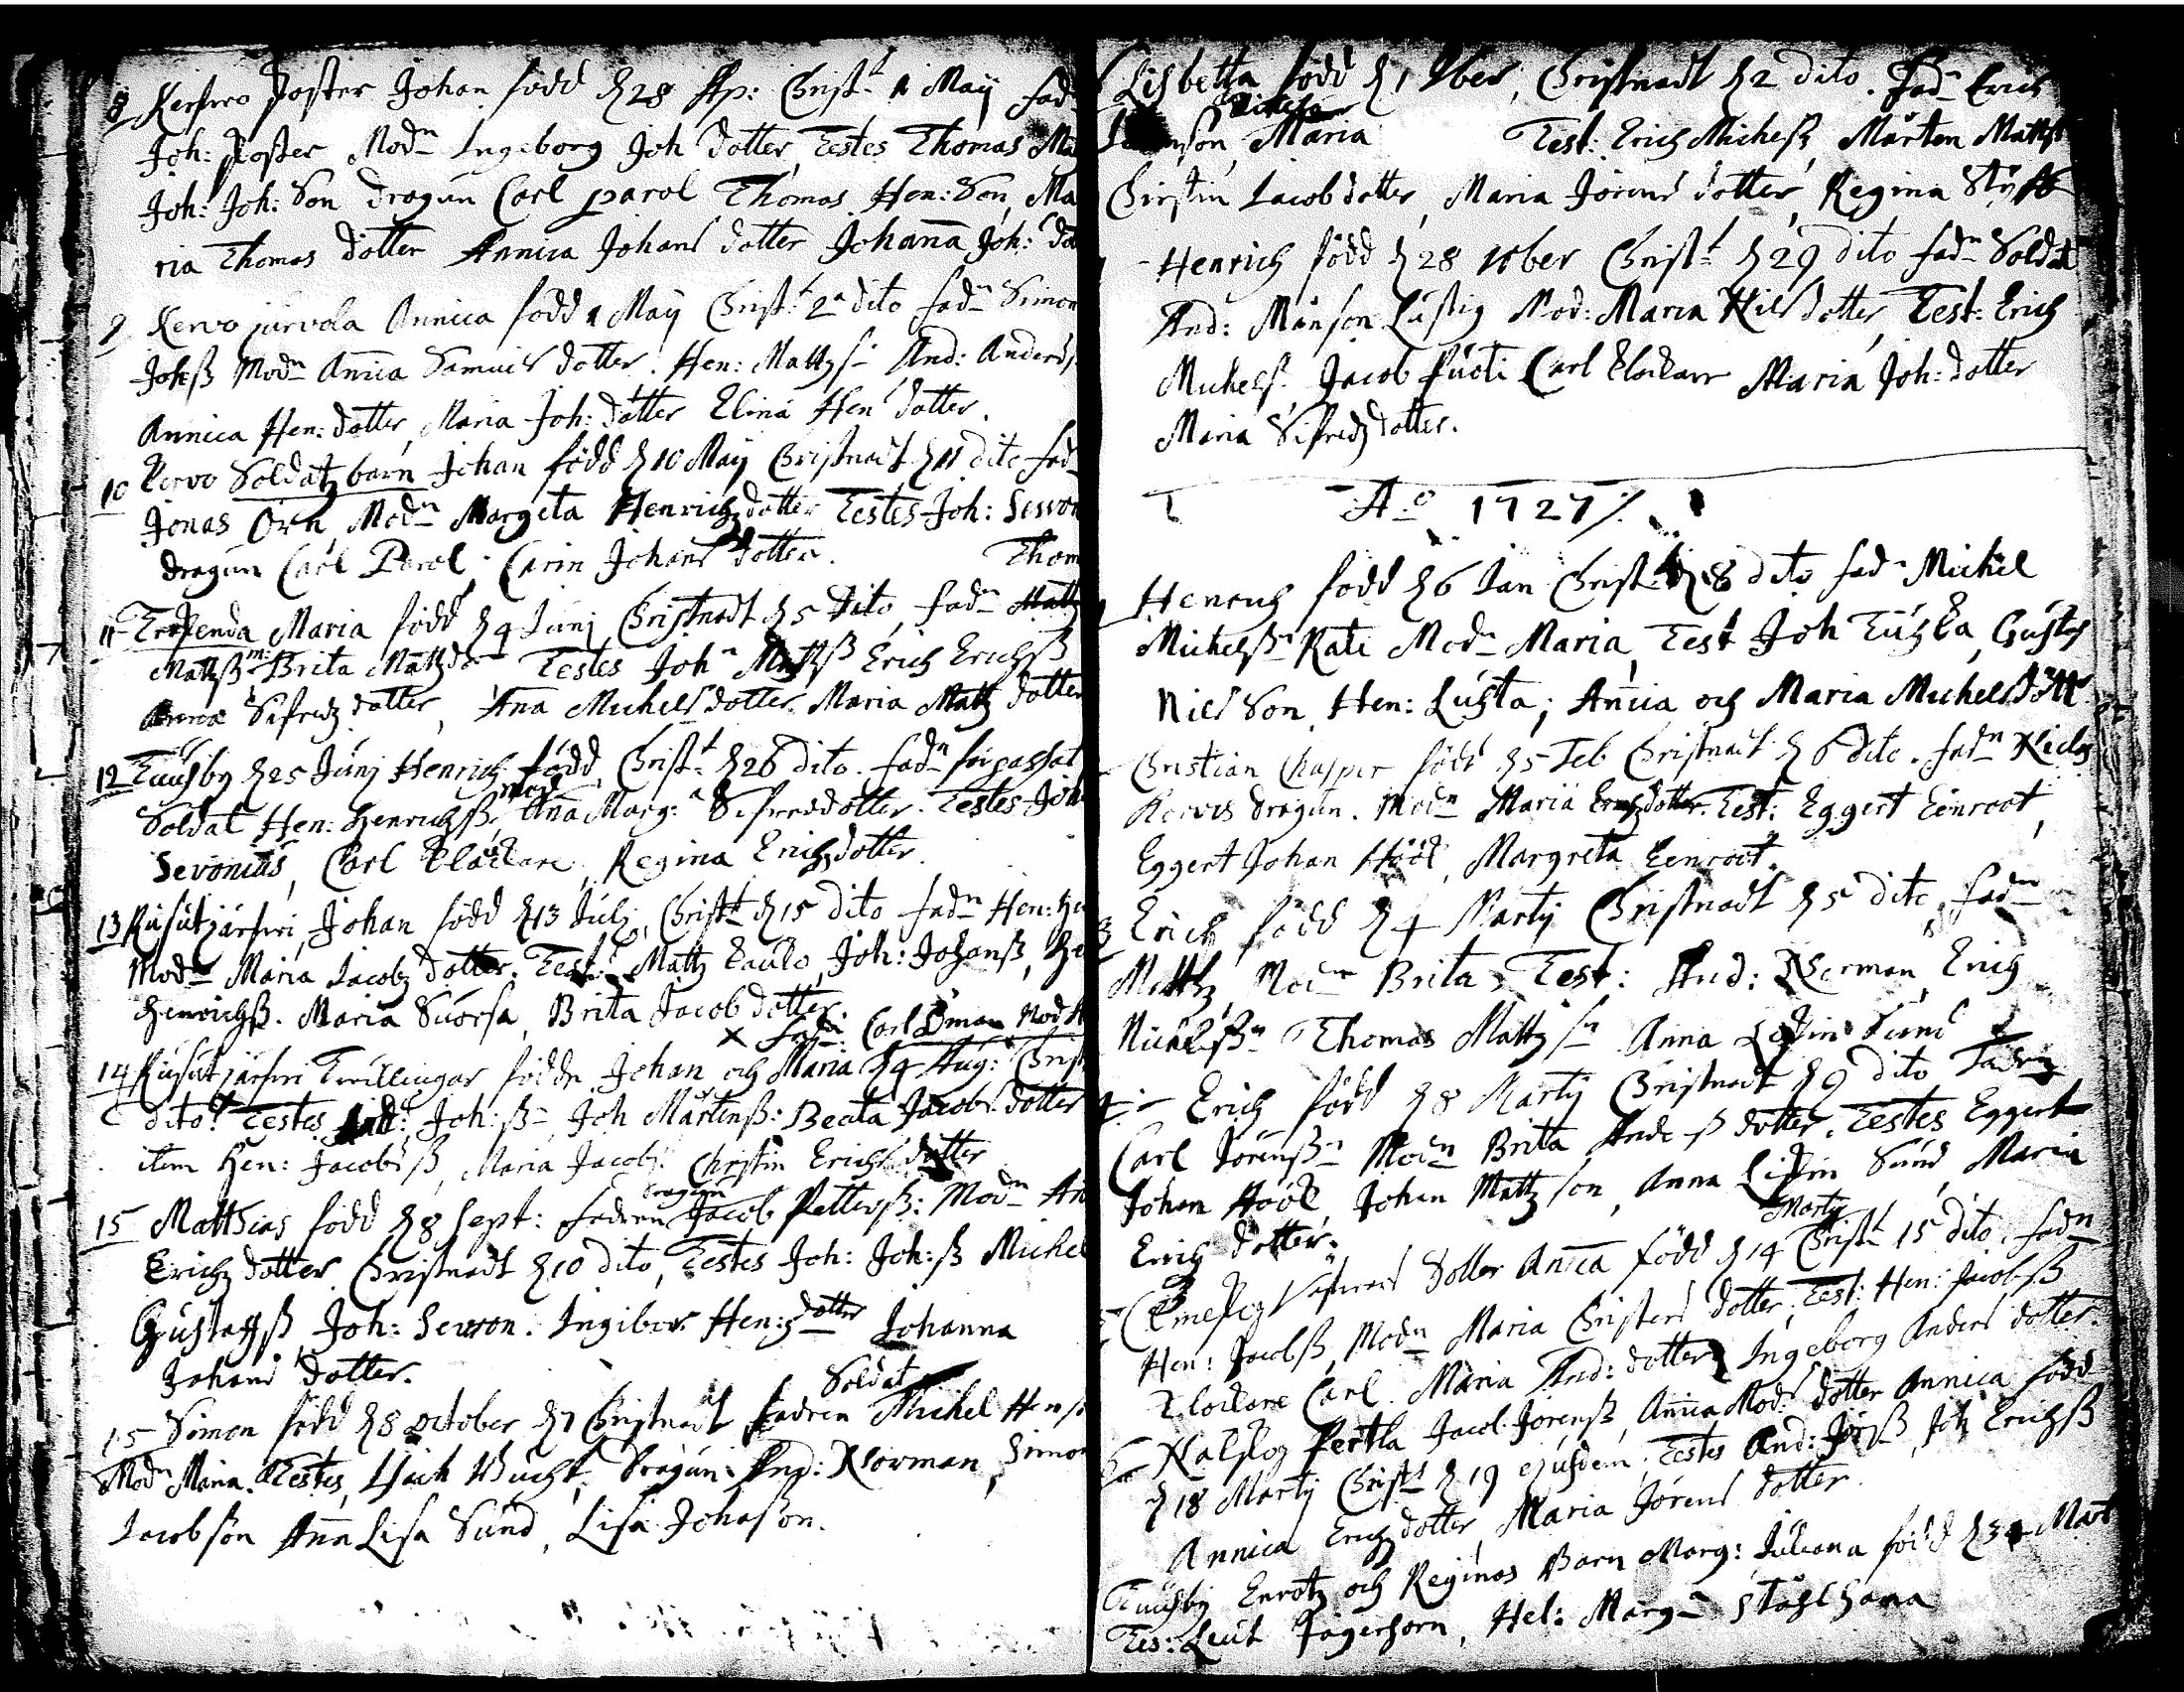 8 Kerfwo Poster Johan född d 28 Ap: Christ 1 Maij fad
Joh: Poster Modn Ingeborg Joh dotter, Testes Thomas Ma
Joh: Joh: Son dragun Carl parol Thomas Hen: Son, Ma
ria Thomas dotter Annica Johans dotter Johanna Joh: dot
9 Kervo jürvola Annica född 1 Maij Christ: 2 dito fadn Simon
Johß Modn Anica Samuels dotter. Hen: Mattzs And: Anders
Annica Hen: dotter, Maria Joh: dotter Elina Hen dotter.
10 Kervo Soldatz barn Johan född d 10 Maij Christnadt d 11 dito fad
Jonas Örn, Modn Margeta Henrichz dotter Testes Joh: Sevon
dragun Carl Parol, Carin Johans dotter. Thom
11 Maria född d 4 Junij Christnadt d 5 dito, fadn Mattz
Mattzß m: Brita Mattz dr Testes John Mattzß Erich Erichß
Anna Sifredz dotter, Ana Michels dotter Maria Mattz dotter
12 Tuusby d 25 Junj Henrich född, Christ d 26 dito. fadn förpassat
Soldat Hen: Henrichß, mod Ana Marg: Sifreds dotter. Testes Joh
Sevonius, Carl Klackare, Regina Erichz dotter.
13 Rusutjärfwi, Johan född d 13 Julj, Christt d 15 dito fadn Hen: He
Modn Maria Jacobz dotter. Test: Mattz Paulo, Joh: Johanß, He
Henrichß. Maria Suorsa, Brita Jacob dotter.
x fadn: Carl Öman Mod A
14 Rusutjärfwi Twillingar födde Johan och Maria d 4 Aug: Christ
dito. Testes Joh: ß Joh Mårtenß: Beata Jacobs dotter
item Hen: Jacobsß, Maria Jacobs. Christin Erichs dotter
15 Matthias född d 8 Sept: fadren dragun Jacob Petterß: Modn An
Erichz dotter, Christnadt d 10 dito, Testes Joh: Joh: ß Michel
Gustaffß, Joh: Sewon. Ingibor Hen: dotter Johanna
Johans dotter.
15 Simon född d 8 october d 7 Christnadt fadren Soldat Michel Hens
Modn Maria. Testes, Dragun And: Norman, Simon
Jacobson Ana Lisa Sund, Lisa Johaßon.
Lisbetta född d 1 9ber, Christnadt d 2 dito. Fadn Erich
Maria Test: Erich Michelß, Mårten Mattß
Christin Jacobs dotter, Maria Jörens dotter, Regina
Henrich född d 28 Xber Christ d 29 dito fadn Soldat
And: Månson Lustig Mod: Maria Nils dotter, Test: Erich
Michelß. Jacob Puoti Carl Klockare Maria Joh: dotter
Maria Sifredz dotter.
Ao 1727
Henrich född d 6 Jan Christ d 8 dito fadn Michel
Michelßn Rati Modn Maria, Test Joh Gustaf
Nils Son, Hen: Lusta, Anica och Maria Michels dott
Christian Chasper född d 5 Feb Christnadt d 6 dito. fadn
dragun. Modn Maria Erichz dotter. Test: Eggert Eenroot,
Eggert Johan Höök, Margreta Eenroot.
3 Erich född d 4 Martij Christnadt d 5 dito, fadn
Mattz, Modn Brita, Test: And: Norman, Erich
Michelßn Thomas Mattzsn Anna Lisin Sund
4 Erich född d 8 Martij Christnadt d 9 dito Fadn
Carl Jörenßn Modn Brita Anderß dotter. Testes Eggert
Johan Höök, Johan Mattz son, Anna Lisin Sund, Maria
Erich dotter.
5 dotter Anica född d 14 Martij Christ 15 dito fadn
Hen: Jacobß, Modn Maria Christers dotter, Test: Hen: Jacobß
Klockare Carl. Maria And: dotter, Ingeborg Anders dotter.
6 Perttla Jacob Jörenß, Anica Mods dotter Annica född
d 18 Martij Christ d 19 ejusdem, Testes And: Jörß, Joh Erichß
Annica Erichz dotter, Maria Jörens dotter.
Tuusby Enrotz och Reginas Barn Marg: Juliana född d 31 Mart
Tes: Leut Jägerhorn, Hel: Marg: Stålhana